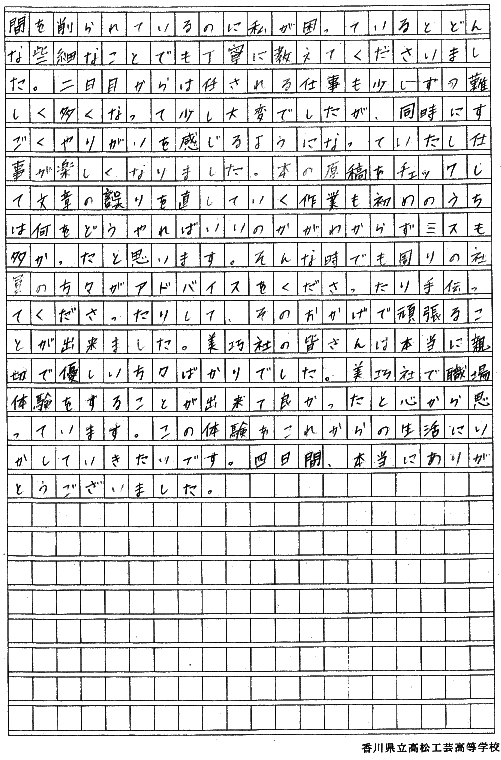 間を削られているのに私が困っているとどん
な些細なことでも丁寧に教えてくださいまし
た。二日目からは任される仕事も少しずつ難
しく多くなって少し大変でしたが、同時にす
ごくやりがいを感じるようになっていたし仕
事が楽しくなりました。本の原稿をチェックし
て文章の誤りを直していく作業も初めのうち
は何をどうやればいいのかがわからずミスも
多かったと思います。そんな時でも周りの社
員の方々がアドバイスをくださったり手伝っ
てくださったりして、そのおかげで頑張るこ
とが出来ました。美巧社の皆さんは本当に親
切で優しい方々ばかりでした。美巧社で職場
体験をすることが出来て良かったと心から思
っています。この体験をこれからの生活にい
かしていきたいです。四日間、本当にありが
とうございました。
香川県立高松工芸高等学校